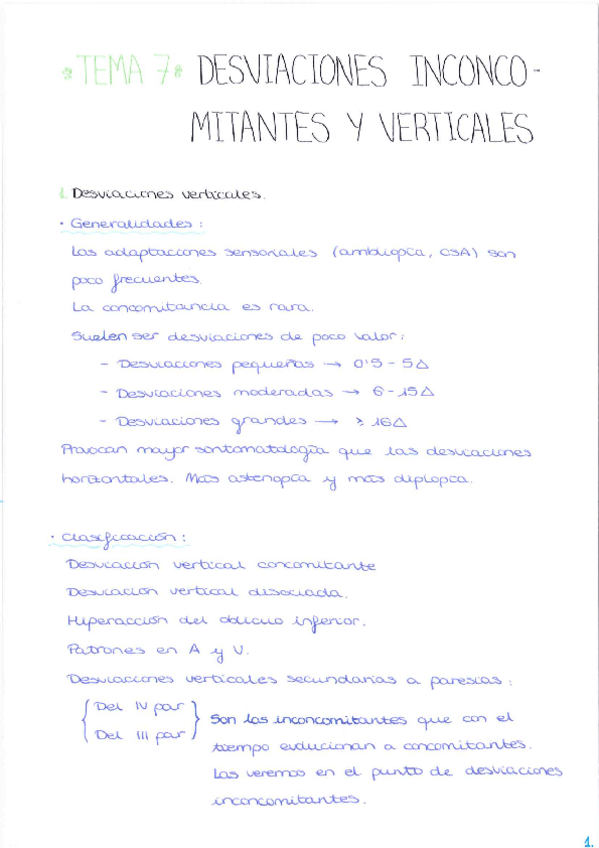 *TEMA 7* DESVIACIONES INCONCO-
MITANTES Y VERTICALES
1. Desviaciones verticales.
· Generalidades:
Las adaptaciones sensoriales (ambliopía, CSA) son
poco frecuentes.
La concomitancia es rara.
Suelen ser desviaciones de poco valor:
- Desviaciones pequeñas → 0'5 - 5Δ
- Desviaciones moderadas → 6 - 15Δ
- Desviaciones grandes → ≥ 16Δ
Provocan mayor sintomatología que las desviaciones
horizontales. Más astenopía y más diplopía.
· Clasificación:
Desviación vertical concomitante
Desviación vertical disociada.
Hiperacción del oblicuo inferior.
Patrones en A y V.
Desviaciones verticales secundarias a paresias:
{ Del IV par } Son las inconcomitantes que con el
{ Del III par } tiempo evolucionan a concomitantes.
Las veremos en el punto de desviaciones
inconcomitantes.
1.